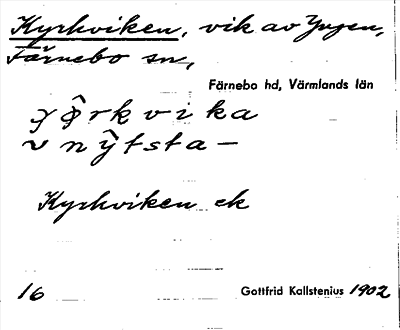 Kyrkviken, vik av Yngen,
Färnebo sn,
Färnebo hd, Värmlands län
Kyrkviken ek
16
Gottfrid Kallstenius 1902